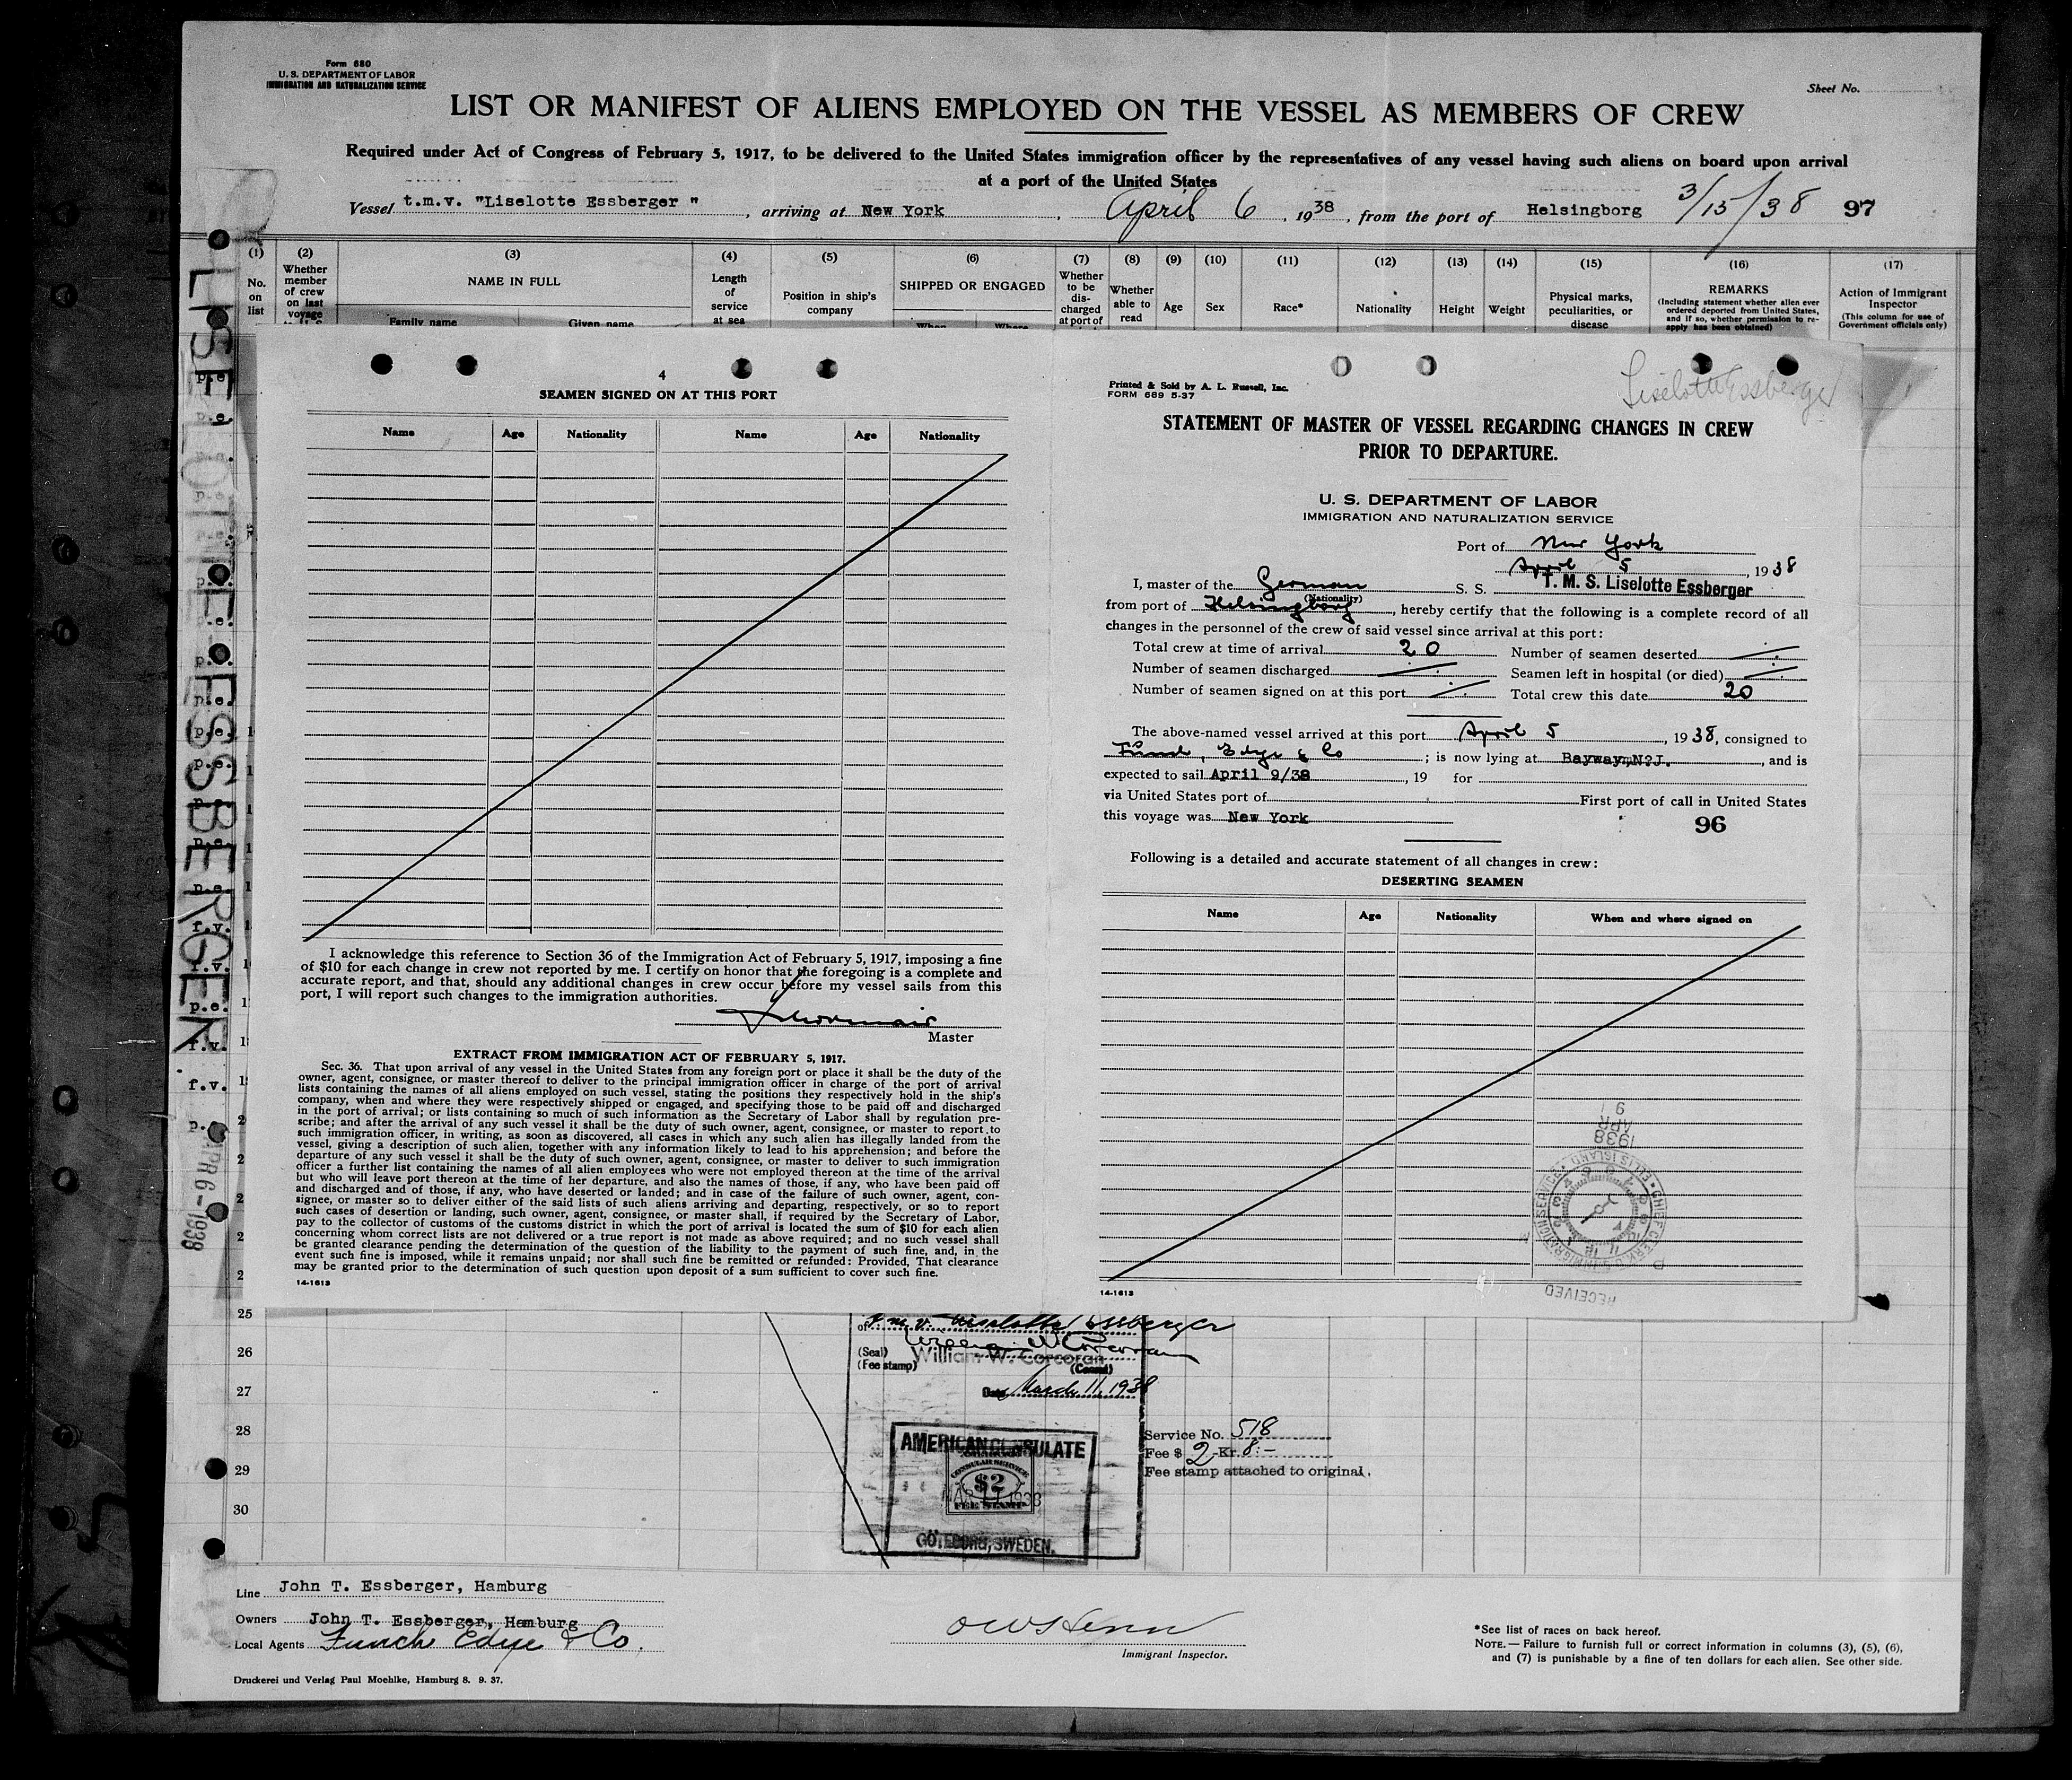 Form 680
U. S. DEPARTMENT OF LABOR
IMMIGRATION AND NATURALIZATION SERVICE
Sheet No.
LIST OR MANIFEST OF ALIENS EMPLOYED ON THE VESSEL AS MEMBERS OF CREW
Required under Act of Congress of February 5, 1917, to be delivered to the United States immigration officer by the representatives of any vessel having such aliens on board upon arrival
at a port of the United States
Vessel t.m.v. "Liselotte Essberger ", arriving at New York, April 6, 1938, from the port of Helsingborg 3/15/38 97
(1) (2) (3) (4) (5) (6) (7) (8) (9) (10) (11) (12) (13) (14) (15) (16) (17)
No. on list
Whether member of crew on last voyage
NAME IN FULL
Family name Given name
Length of service at sea
Position in ship's company
SHIPPED OR ENGAGED
Whether to be discharged at port of
Whether able to read
Age
Sex
Race*
Nationality
Height
Weight
Physical marks, peculiarities, or disease
REMARKS
(Including statement whether alien ever ordered deported from United States, and if so, whether permission to reapply has been obtained)
Action of Immigrant Inspector
(This column for use of Government officials only)
LISELOTTE ESSBERGER
APR 6-1938
p.e.
p.e.
f.v.
f.v.
p.e.
f.v.
f.v.
4
SEAMEN SIGNED ON AT THIS PORT
Name Age Nationality Name Age Nationality
I acknowledge this reference to Section 36 of the Immigration Act of February 5, 1917, imposing a fine
of $10 for each change in crew not reported by me. I certify on honor that the foregoing is a complete and
accurate report, and that, should any additional changes in crew occur before my vessel sails from this
port, I will report such changes to the immigration authorities.
Master
EXTRACT FROM IMMIGRATION ACT OF FEBRUARY 5, 1917.
Sec. 36. That upon arrival of any vessel in the United States from any foreign port or place it shall be the duty of the
owner, agent, consignee, or master thereof to deliver to the principal immigration officer in charge of the port of arrival
lists containing the names of all aliens employed on such vessel, stating the positions they respectively hold in the ship's
company, when and where they were respectively shipped or engaged, and specifying those to be paid off and discharged
in the port of arrival; or lists containing so much of such information as the Secretary of Labor shall by regulation pre-
scribe; and after the arrival of any such vessel it shall be the duty of such owner, agent, consignee, or master to report to
such immigration officer, in writing, as soon as discovered, all cases in which any such alien has illegally landed from the
vessel, giving a description of such alien, together with any information likely to lead to his apprehension; and before the
departure of any such vessel it shall be the duty of such owner, agent, consignee, or master to deliver to such immigration
officer a further list containing the names of all alien employees who were not employed thereon at the time of the arrival
but who will leave port thereon at the time of her departure, and also the names of those, if any, who have been paid off
and discharged and of those, if any, who have deserted or landed; and in case of the failure of such owner, agent, con-
signee, or master so to deliver either of the said lists of such aliens arriving and departing, respectively, or so to report
such cases of desertion or landing, such owner, agent, consignee, or master shall, if required by the Secretary of Labor,
pay to the collector of customs of the customs district in which the port of arrival is located the sum of $10 for each alien
concerning whom correct lists are not delivered or a true report is not made as above required; and no such vessel shall
be granted clearance pending the determination of the question of the liability to the payment of such fine, and, in the
event such fine is imposed, while it remains unpaid; nor shall such fine be remitted or refunded: Provided, That clearance
may be granted prior to the determination of such question upon deposit of a sum sufficient to cover such fine.
14-1613
Liselotte Essberger
Printed & Sold by A. L. Russell, Inc.
FORM 689 5-37
STATEMENT OF MASTER OF VESSEL REGARDING CHANGES IN CREW
PRIOR TO DEPARTURE.
U. S. DEPARTMENT OF LABOR
IMMIGRATION AND NATURALIZATION SERVICE
Port of New York
April 5, 1938
I, master of the German S. S. T. M. S. Liselotte Essberger
(Nationality)
from port of Helsingborg, hereby certify that the following is a complete record of all
changes in the personnel of the crew of said vessel since arrival at this port:
Total crew at time of arrival 20 Number of seamen deserted
Number of seamen discharged Seamen left in hospital (or died)
Number of seamen signed on at this port Total crew this date 20
The above-named vessel arrived at this port April 5, 1938, consigned to
Funch, Edye & Co; is now lying at Bayway, N.J., and is
expected to sail April 9/38, 19 for
via United States port of First port of call in United States
this voyage was New York
96
Following is a detailed and accurate statement of all changes in crew:
DESERTING SEAMEN
Name Age Nationality When and where signed on
RECEIVED
1938
APR
9
14-1613
25
26
27
28
29
30
of t.m.v. Liselotte Essberger
(Seal)
(Fee stamp)
William W. Corcoran
(Consul)
Date March 11, 1938
AMERICAN CONSULATE
CONSULAR SERVICE
$2
FEE STAMP
MAR 11 1938
GÖTEBORG, SWEDEN.
Service No. 518
Fee $ 2 - Kr. 8:-
Fee stamp attached to original.
Line John T. Essberger, Hamburg
Owners John T. Essberger, Hamburg
Local Agents Funch Edye & Co.
Immigrant Inspector.
Druckerei und Verlag Paul Moehlke, Hamburg 8. 9. 37.
*See list of races on back hereof.
NOTE.— Failure to furnish full or correct information in columns (3), (5), (6),
and (7) is punishable by a fine of ten dollars for each alien. See other side.